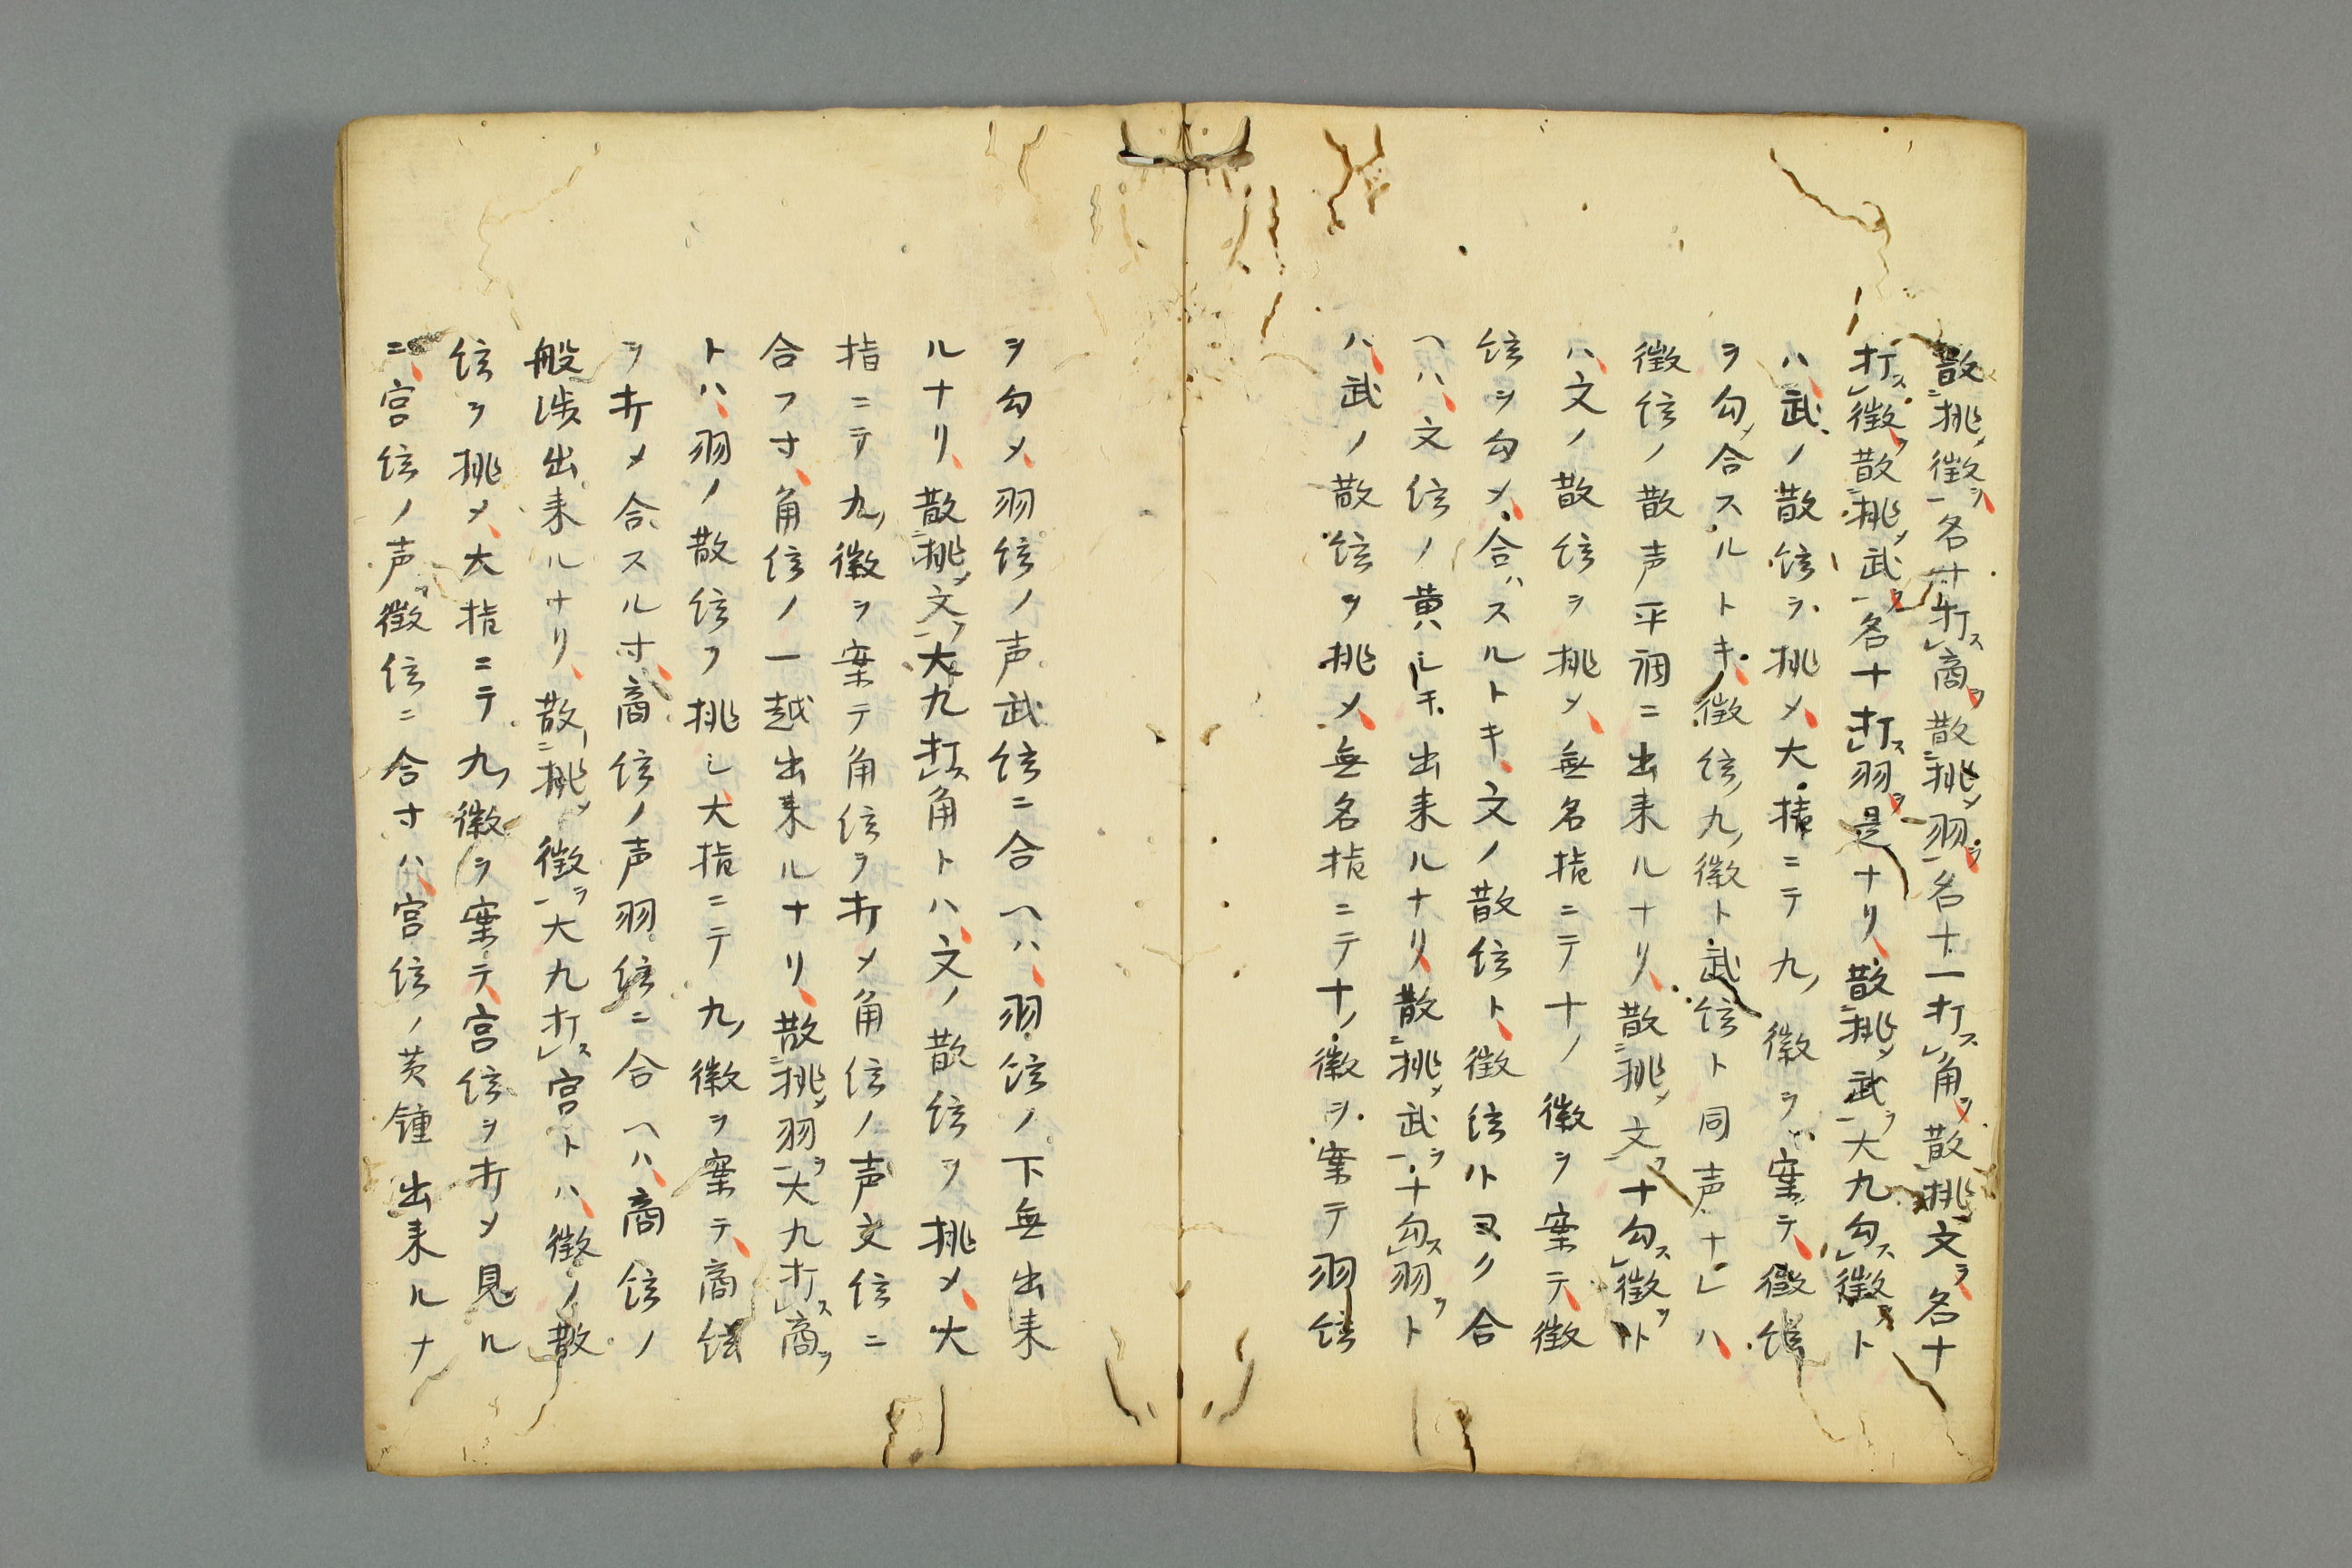 散ニ挑メ徴ヲ一名十打ス商ヲ散ニ挑メ羽ヲ一名十一打ス角ヲ散ニ挑文ヲ名十
打ス徴ヲ散ニ挑メ武ヲ一名十打ス羽ヲ是ナリ散ニ挑メ武ヲ大九勾ス徴ヲト
ハ武ノ散弦ヲ挑メ大指ニテ九ノ徽ヲ案テ徴弦
ヲ勾メ合スルトキ徴弦九ノ徽ト武弦ト同声ナレハ
徴弦ノ散声平調ニ出来ルナリ散ニ挑メ文ヲ十勾ス徴ヲト
ハ文ノ散弦ヲ挑メ無名指ニテ十ノ徽ヲ案テ徴
弦ヲ勾メ合ハスルトキ文ノ散弦ト徴弦トヨク合
ヘハ文弦ノ黄ハシキ出来ルナリ散ニ挑メ武ヲ一十勾ス羽ヲト
ハ武ノ散弦ヲ挑メ無名指ニテ十ノ徽ヲ案テ羽弦
ヲ勾メ羽弦ノ声武弦ニ合ヘハ羽弦ノ下無出来
ルナリ散ニ挑メ文ヲ大九打ス角トハ文ノ散弦ヲ挑メ大
指ニテ九ノ徽ヲ案テ角弦ヲ打メ角弦ノ声文弦ニ
合フ寸角弦ノ一越出来ルナリ散ニ挑メ羽ヲ大九打ス商ヲ
トハ羽ノ散弦ヲ挑シ大指ニテ九ノ徽ヲ案テ商弦
ヲ打メ合スル寸商弦ノ声羽弦ニ合ヘハ商弦ノ
般渉出来ルナリ散ニ挑メ徴ヲ大九打ス宮トハ徴ノ散
弦ヲ挑メ大指ニテ九ノ徽ヲ案テ宮弦ヲ打メ見ル
ニ宮弦ノ声徴弦ニ合寸ハ宮弦ノ黄鍾出来ルナ